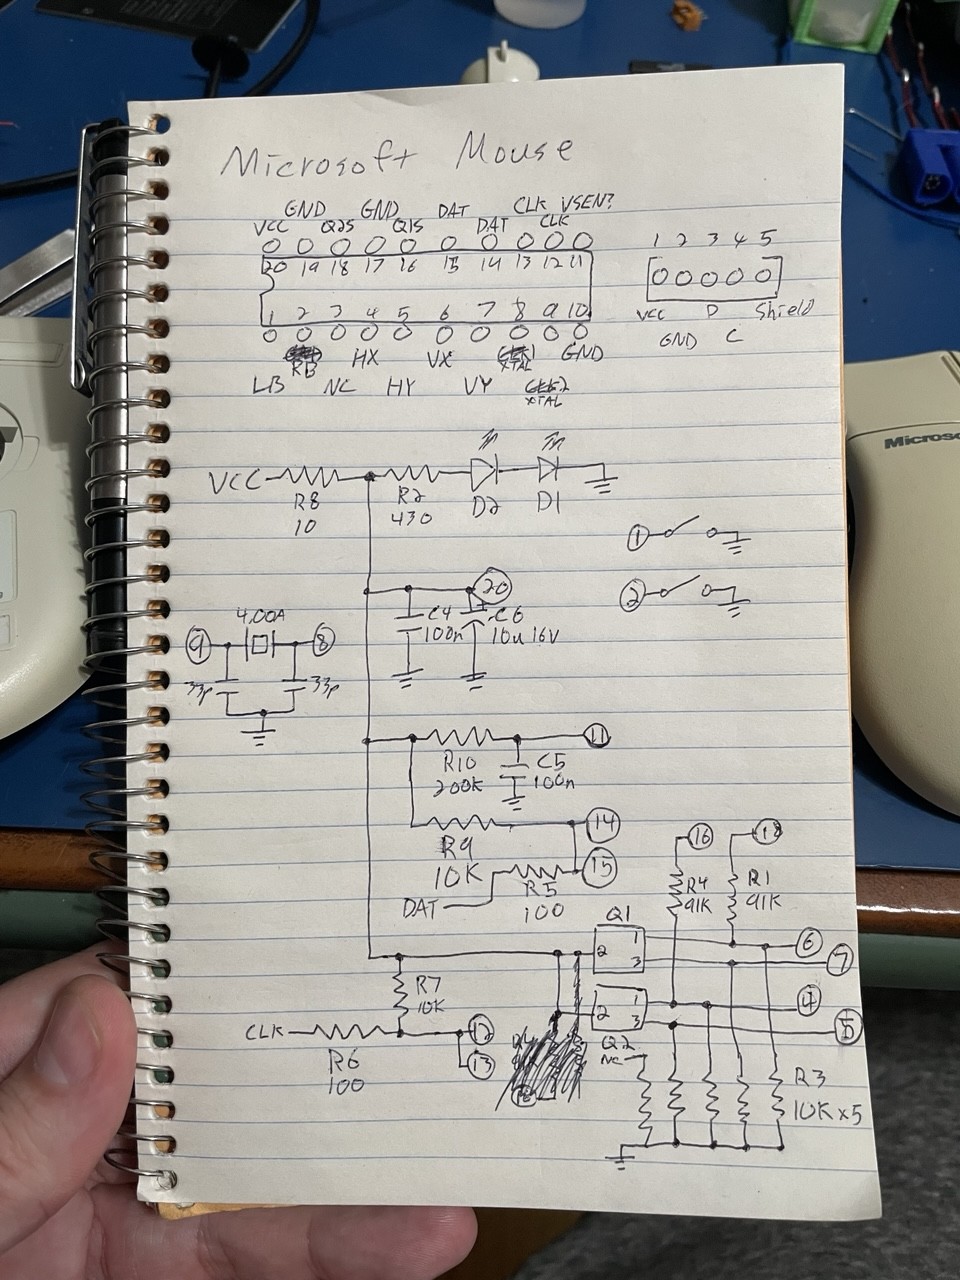 Microsoft Mouse
GND GND DAT CLK VSEN?
VCC Q2S Q1S DAT CLK
20 19 18 17 16 15 14 13 12 11
1 2 3 4 5 6 7 8 9 10
RB HX VX XTAL GND
LB NC HY VY XTAL
1 2 3 4 5
VCC D Shield
GND C
VCC
R8
10
R2
430
D2
D1
1
2
20
C4
100n
C6
10u 16V
4.00A
9
8
33p
33p
11
R10
200K
C5
100n
14
R9
10K
15
R5
100
DAT
16
18
R4
91K
R1
91K
Q1
1
2
3
6
7
R7
10K
1
2
3
4
5
CLK
12
13
R6
100
Q2
NC
R3
10K x5
Microso